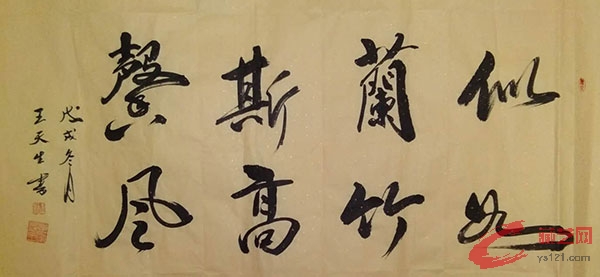 似蘭斯馨
如竹高风
戊戌冬月
王天生書
ys121.com